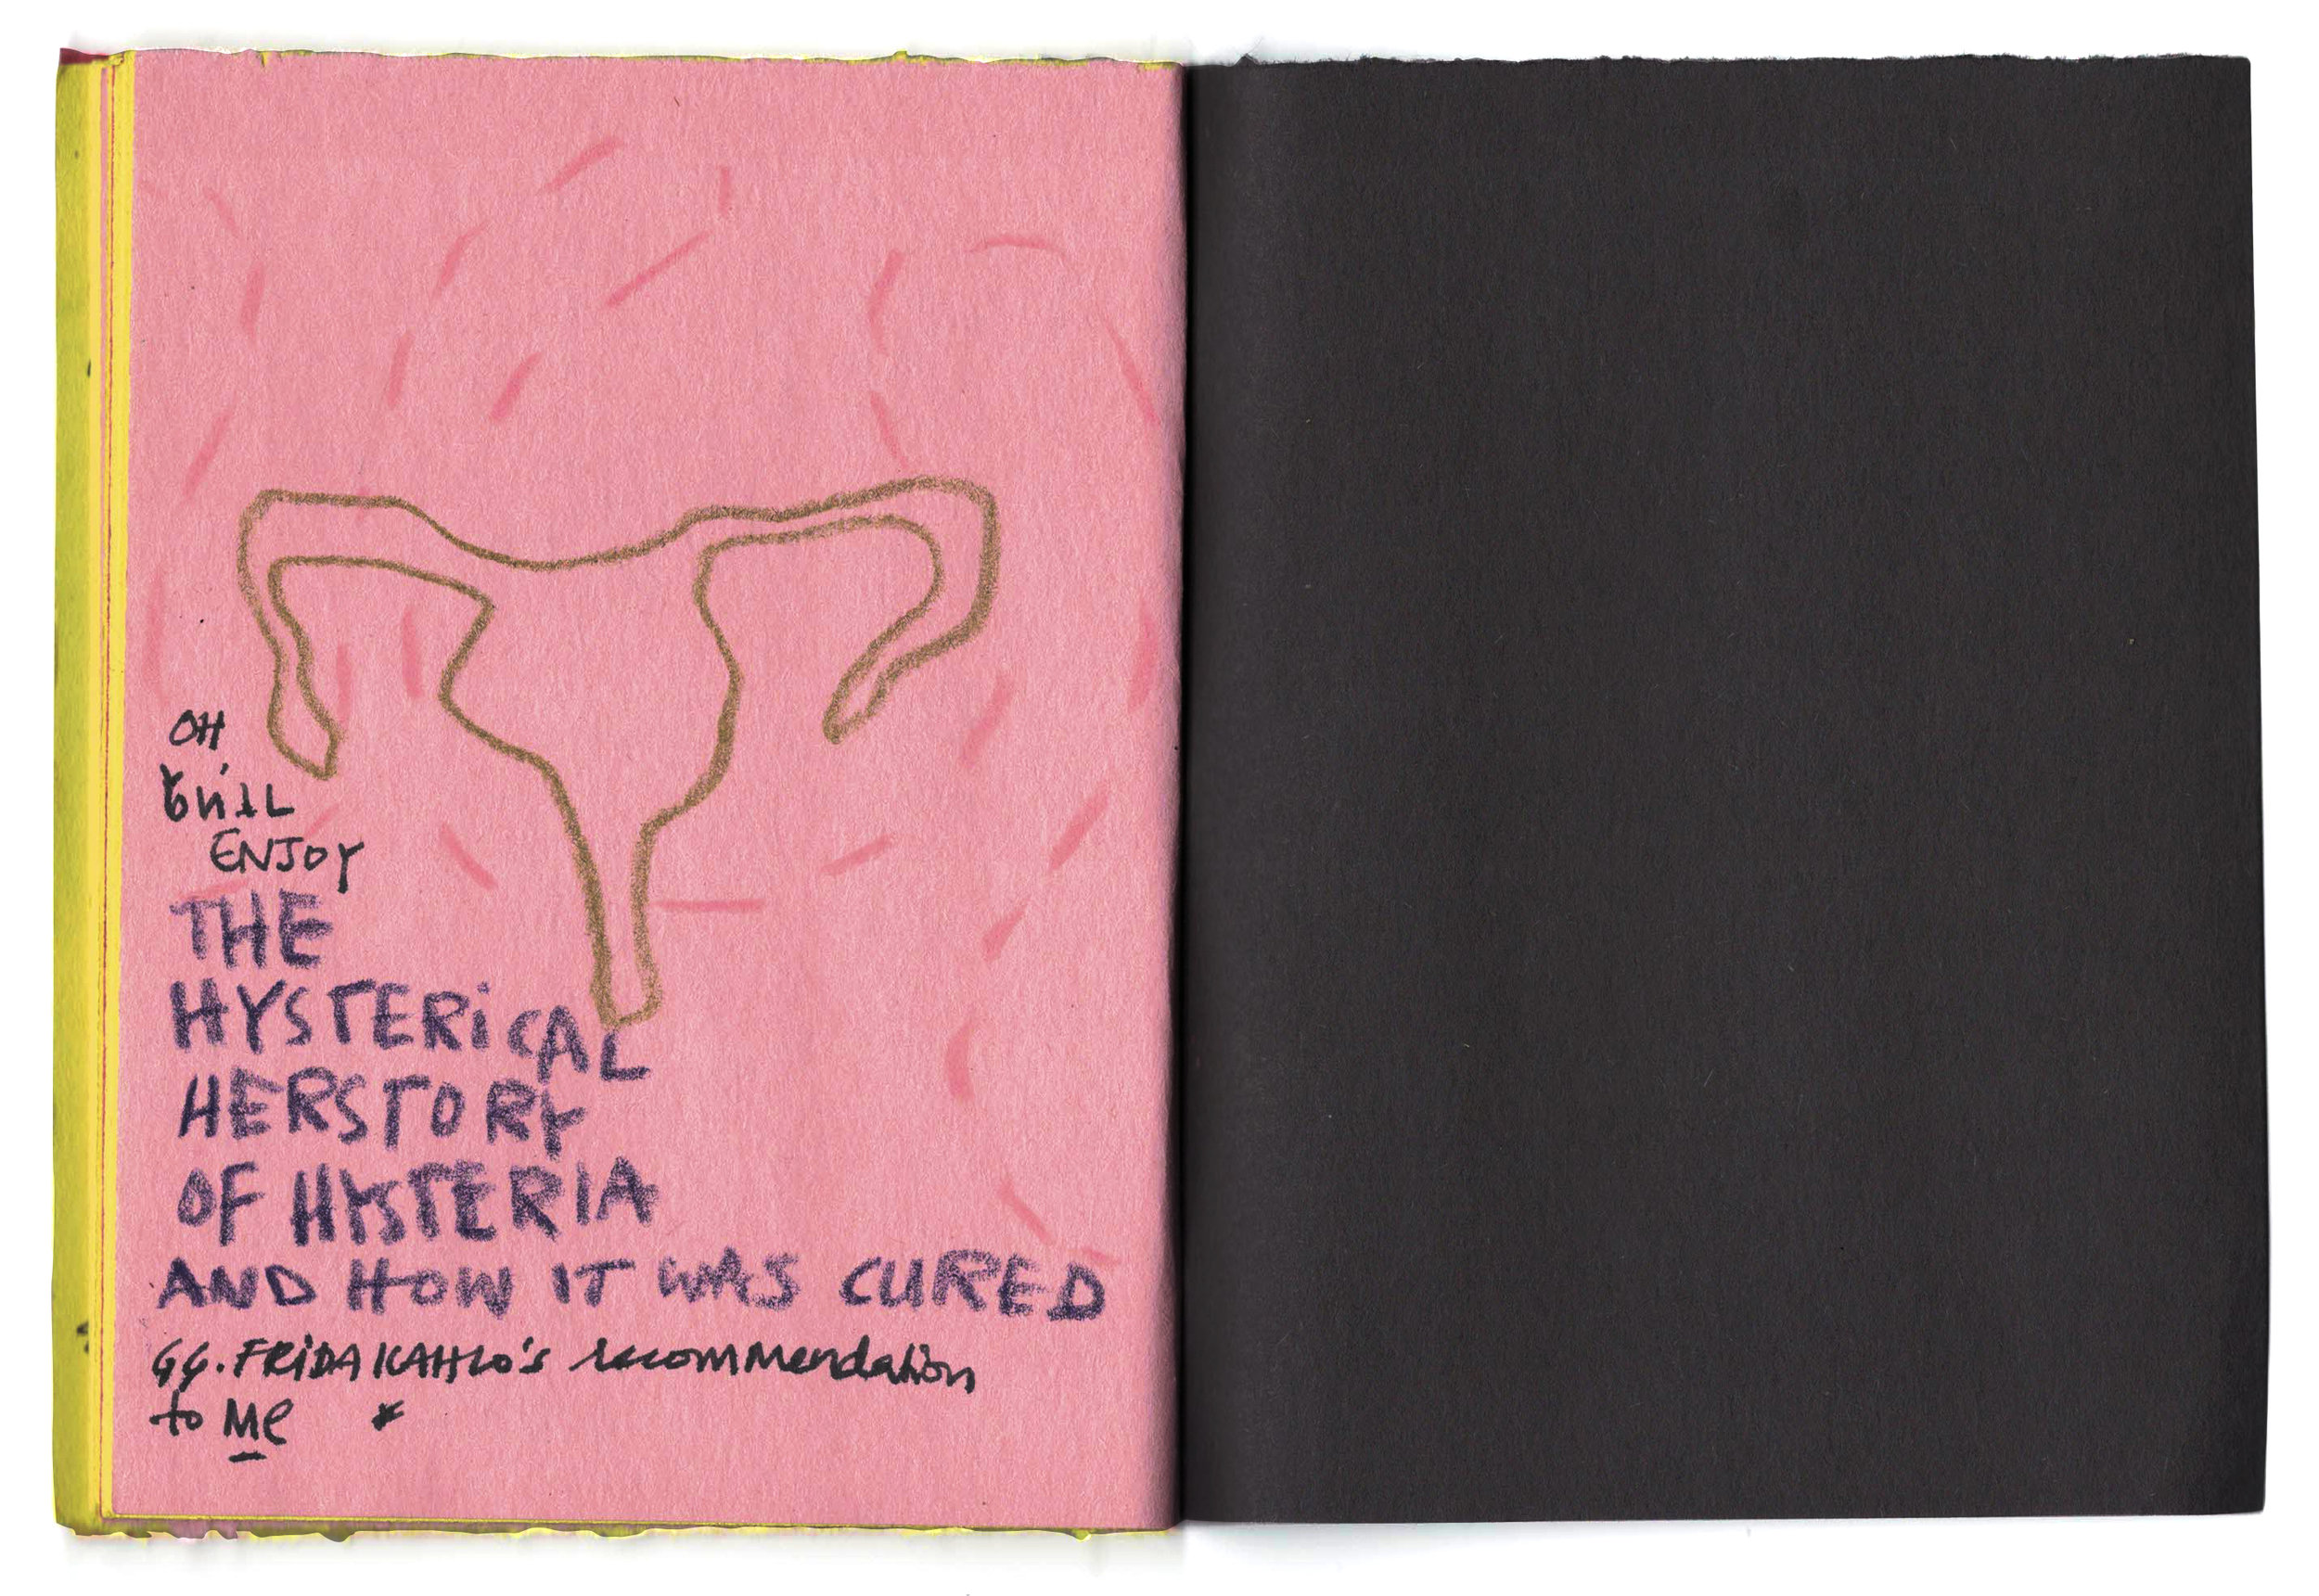 OH
ENJOY
THE
HYSTERiCAL
HERSTORY
OF HYSTERIA
AND HOW IT WAS CURED
GG. FRiDA KAHLO's recommendation
to Me *